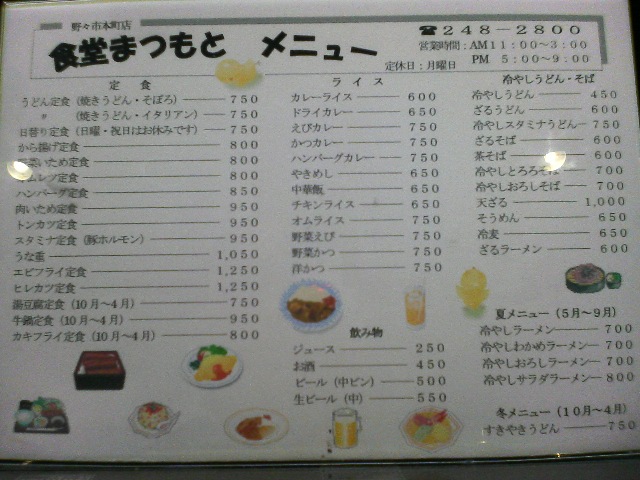 野々市本町店
食堂まつもと メニュー
☎248-2800
営業時間:AM11:00～3:00
定休日:月曜日 PM 5:00～9:00
定食
うどん定食 (焼きうどん・そぼろ) 750
〃 (焼きうどん・イタリアン) 750
日替り定食 (日曜・祝日はお休みです) 750
から揚げ定食 800
野菜いため定食 800
オムレツ定食 800
ハンバーグ定食 850
肉いため定食 950
トンカツ定食 950
スタミナ定食 (豚ホルモン) 950
うな重 1,050
エビフライ定食 1,250
ヒレカツ定食 1,250
湯豆腐定食 (10月～4月) 750
牛鍋定食 (10月～4月) 950
カキフライ定食 (10月～4月) 800
ライス
カレーライス 600
ドライカレー 650
えびカレー 750
かつカレー 750
ハンバーグカレー 750
やきめし 650
中華飯 650
チキンライス 650
オムライス 750
野菜えび 750
野菜かつ 750
洋かつ 750
飲み物
ジュース 250
お酒 450
ビール (中ビン) 500
生ビール (中) 550
冷やしうどん・そば
冷やしうどん 450
ざるうどん 600
冷やしスタミナうどん 750
ざるそば 600
茶そば 600
冷やしとろろそば 700
冷やしおろしそば 700
天ざる 1,000
そうめん 650
冷麦 650
ざるラーメン 600
夏メニュー (5月～9月)
冷やしラーメン 700
冷やしわかめラーメン 700
冷やしおろしラーメン 700
冷やしサラダラーメン 800
冬メニュー (10月～4月)
すきやきうどん 750